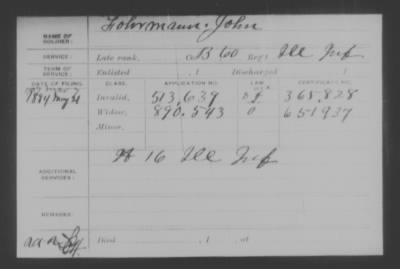 NAME OF SOLDIER: Lohrmann, John
SERVICE: Late rank, Co. B 60 Reg't Ill Inf
TERM OF SERVICE: Enlisted , 1 Discharged , 1
DATE OF FILING. CLASS. APPLICATION NO. LAW. CERTIFICATE NO.
1884 May 21 Invalid, 513,639 365,828
Widow, 890,543 651937
Minor,
ADDITIONAL SERVICES: H 16 Ill Inf
REMARKS:
Died , 1 , at